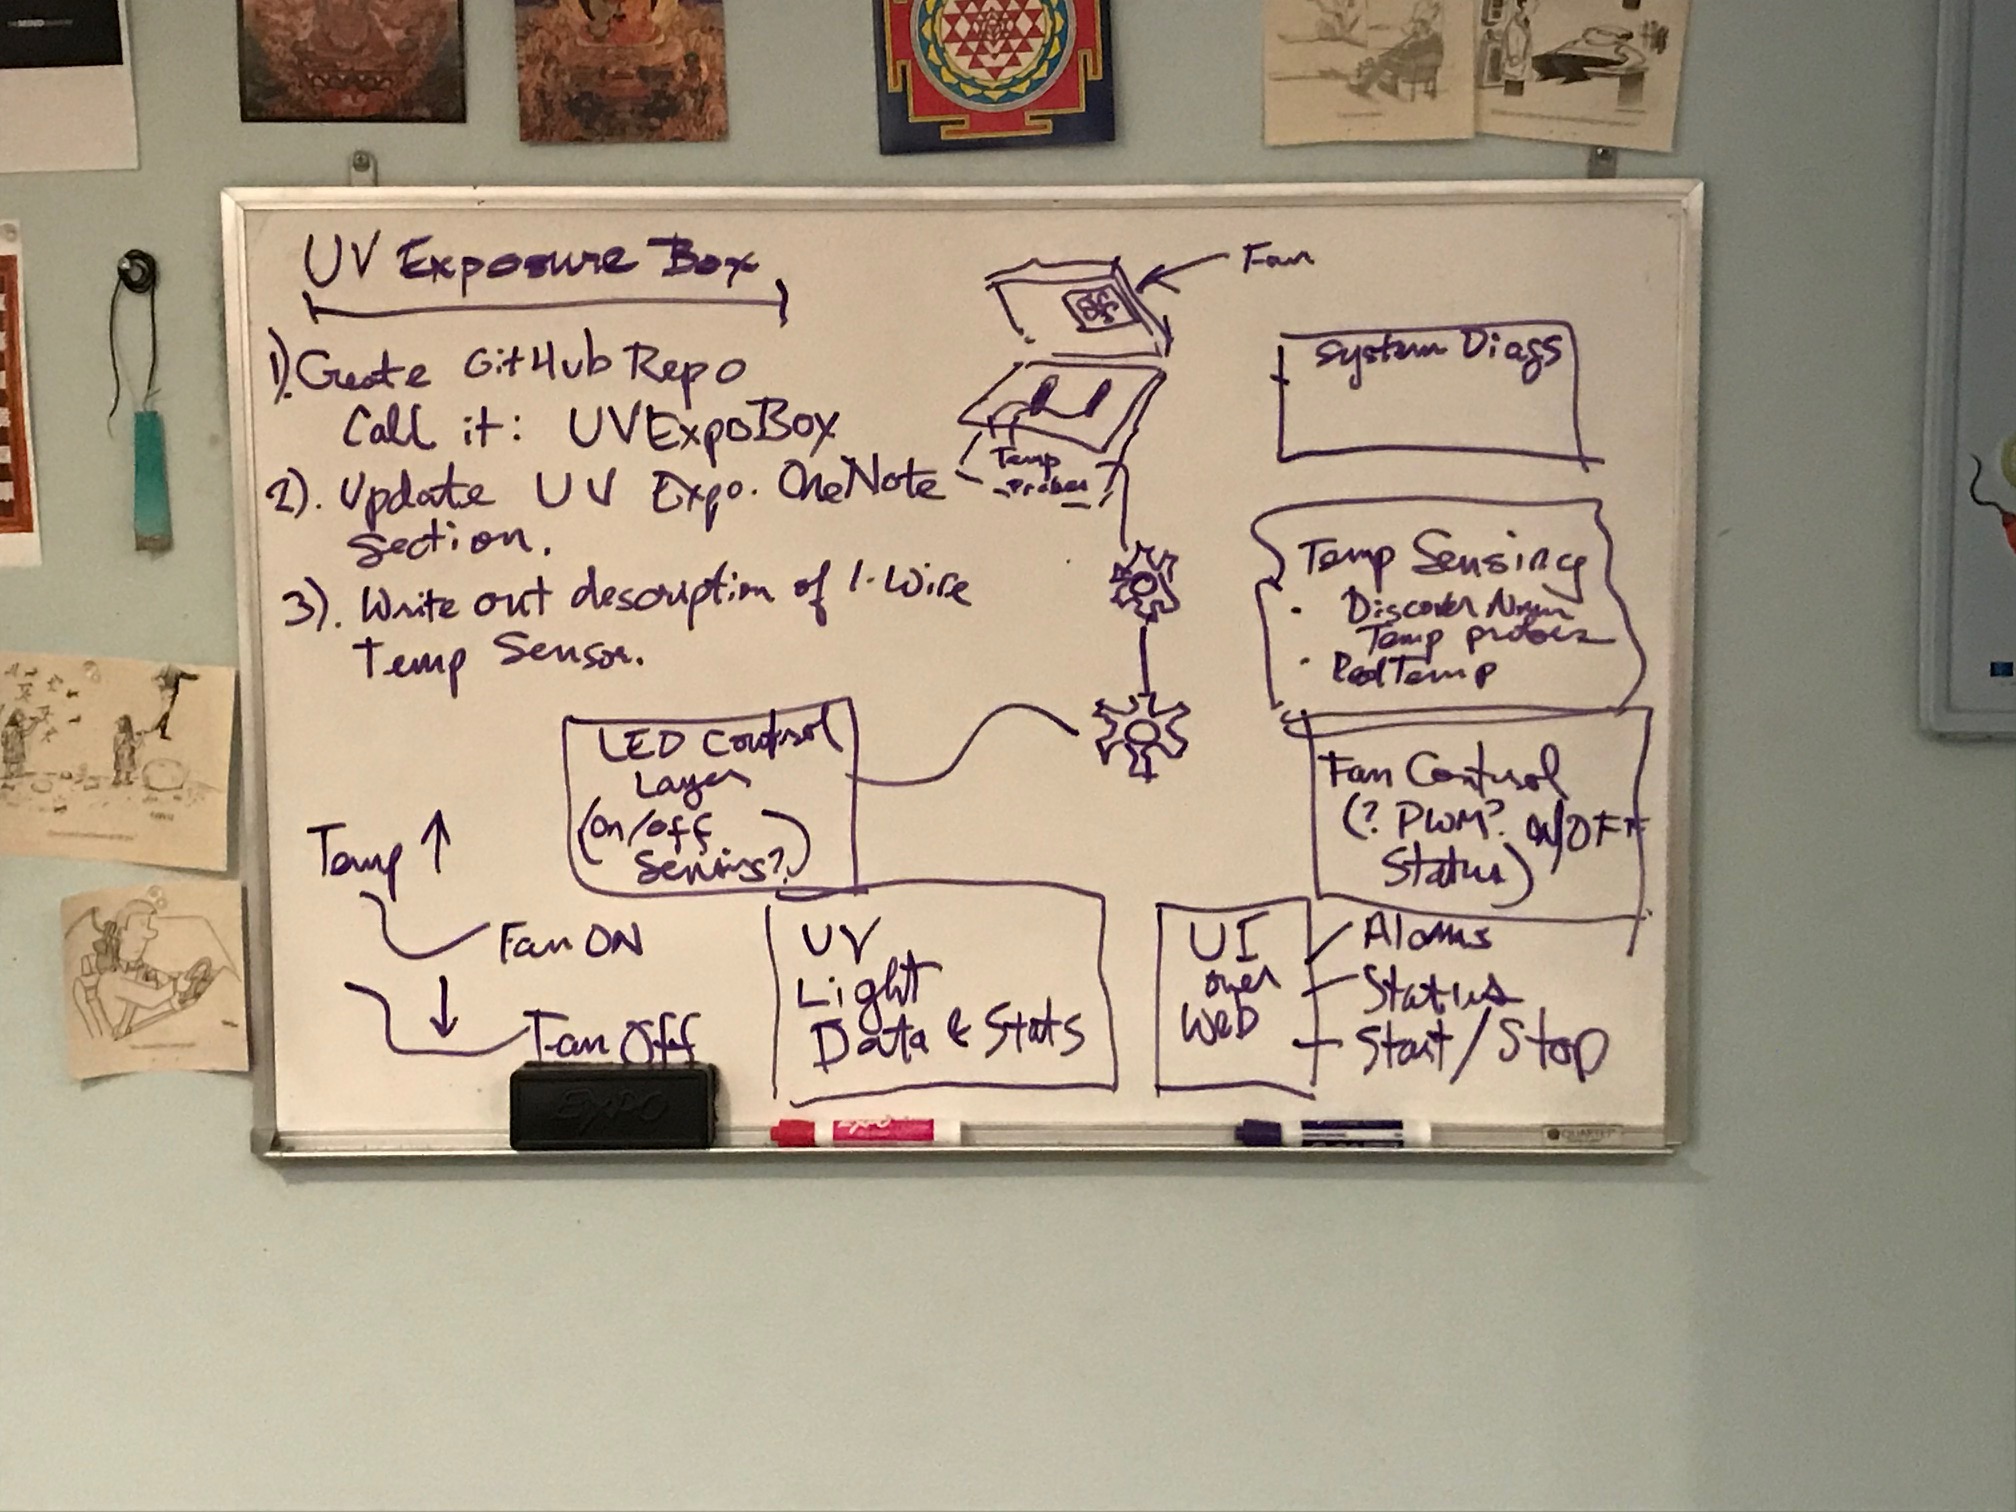 UV Exposure Box
1). Create GitHub Repo
Call it: UVExpoBox
2). Update UV Expo. OneNote
Section.
3). Write out description of 1-Wire
Temp Sensor.
Fan
Temp
Probes
System Diags
Temp Sensing
• Discover
Temp probes
• Read Temp
LED Control
Layer
(on/off
Fan Control
(? PWM? ON/OFF
Status)
Temp ↑
Fan ON
↓
Fan Off
UV
Light
Data & Stats
UI
over
Web
Alarms
Status
Start/Stop
EXPO
EXPO
QUARTET